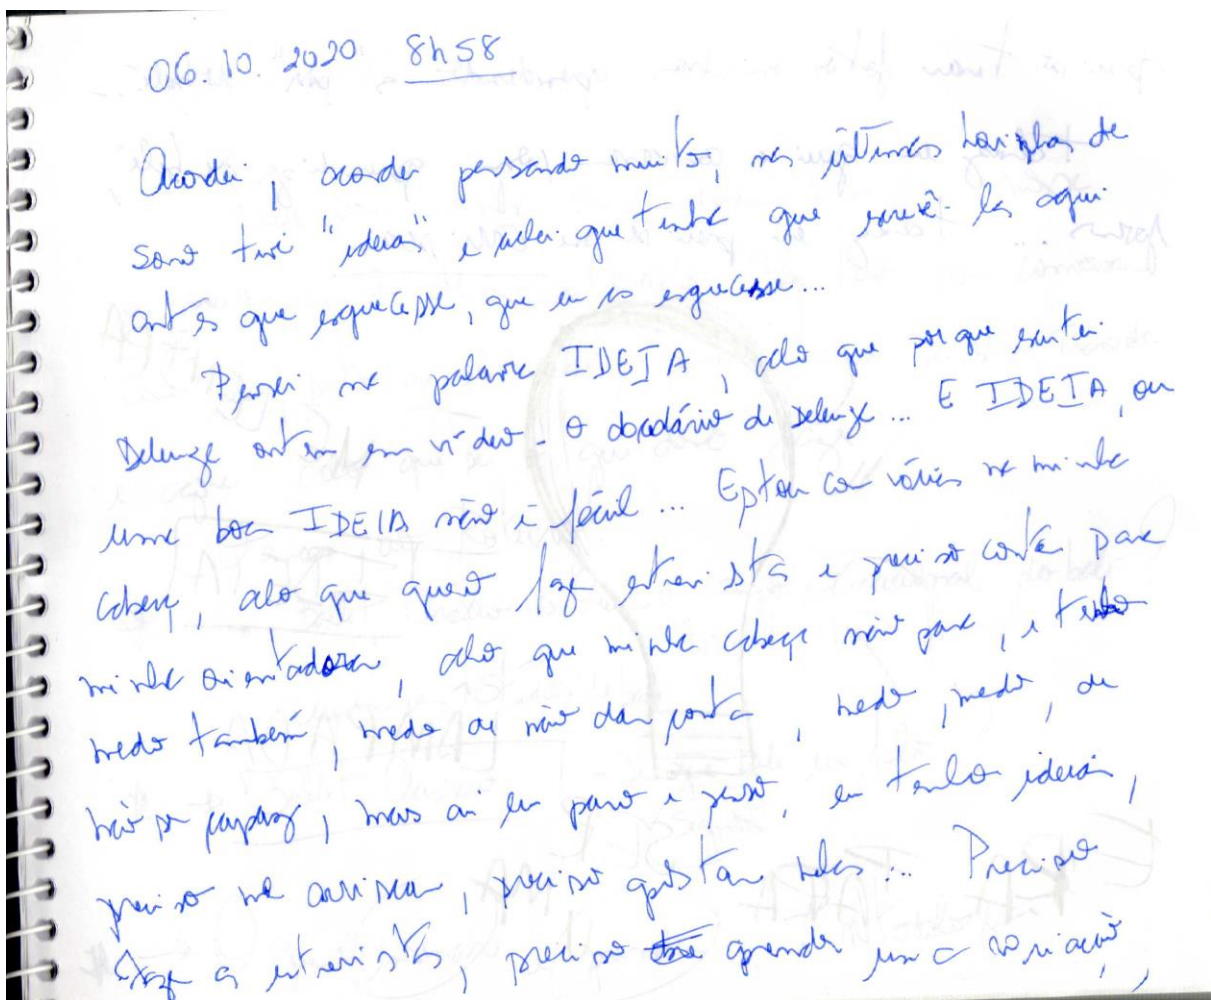 06.10.2020 8h58
Acordei, acordei pensando muito, nas últimas horinhas de
sono tive "ideias" e achei que tinha que escrevê-las aqui
antes que esquecesse, que eu as esquecesse...
Pensei na palavra IDEIA, acho que porque escutei
Deleuze ontem em vídeo - O abecedário de Deleuze... E IDEIA, ou
uma boa IDEIA não é fácil... Estou com várias na minha
cabeça, acho que quero fazer entrevistas e preciso contar para
minha orientadora, acho que minha cabeça não para, e tenho
medo também, medo de não dar conta, medo, medo, de
não ser capaz, mas aí eu paro e penso, eu tenho ideias,
preciso me arriscar, preciso gostar delas... Preciso
fazer as entrevistas, preciso aprender uma variação,